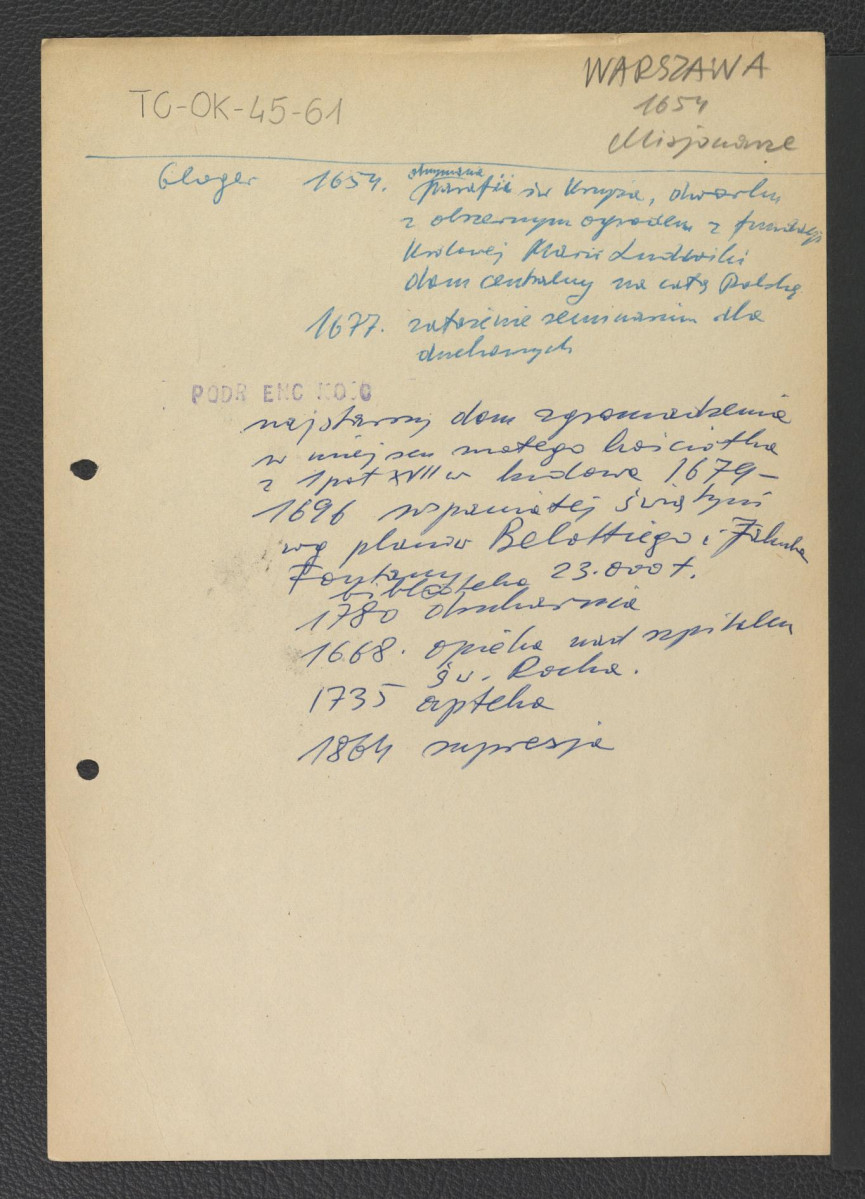 WARSZAWA
TC-OK-45-61
1654
Misjonarze
Gloger 1654. otrzymanie
parafii św Krzyża, dworku
z obszernym ogrodem z fundacji
Królowej Marii Ludwiki
dom centralny na całą Polskę
1677. założenie seminarium dla
duchownych
PODR ENC KOŚC
najstarszy dom zgromadzenia
w miejscu małego kościółka
z 1 poł XVII w budowa 1679-
1696 wspaniałej świątyni
wg planów Belottiego i Jakuba
Fontany
biblioteka 23.000 t.
1780 drukarnia
1668. opieka nad szpitalem
św. Rocha.
1735 apteka
1864 supresja